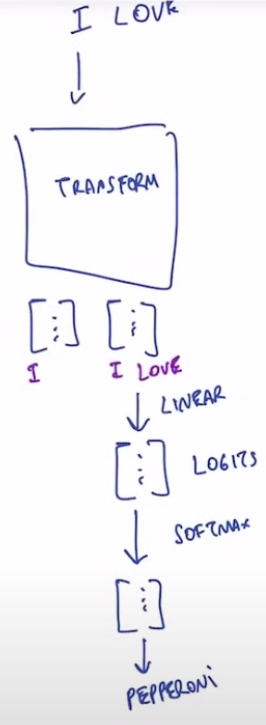 I LOVE
TRANSFORM
[⋮] [⋮]
I I LOVE
LINEAR
[⋮] LOGITS
SOFTMAX
[⋮]
PEPPERONI